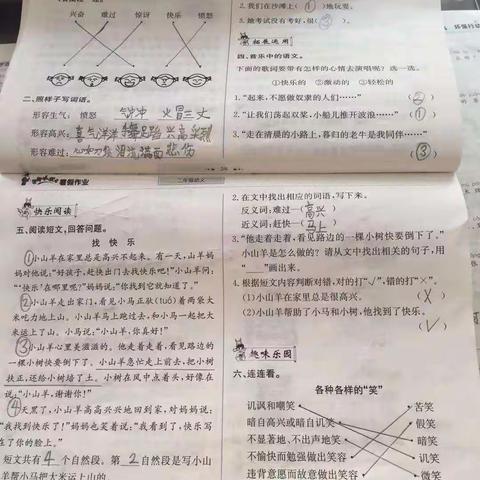 兴奋 难过 惊讶 快乐 愤怒
二、照样子写词语。
形容生气: 愤怒 火冒三丈
形容高兴: 喜气洋洋
形容难过: 泪流满面 悲伤
2.我们在沙滩上(①)地玩耍。
3.她考试没有考好,很(③)
拓展运用
四、音乐中的语文。
下面的歌词要带有怎样的心情去演唱呢?选一选。
①快乐的 ②激动的 ③轻松的
1.“起来,不愿做奴隶的人们……” (②)
2.“让我们荡起双桨,小船儿推开波浪……” (①)
3.“走在清晨的小路上,暮归的老牛是我同伴……”
(③)
暑假作业 二年级语文
快乐阅读
五、阅读短文,回答问题。
找 快 乐
①小山羊在家里总是高兴不起来。有一天,山羊妈
妈对他说:“好孩子,赶快出门去找快乐吧!”小山羊问:
“‘快乐’在哪里呢?”妈妈说:“你找到它就知道了。”
②小山羊走出家门,看见小马正驮(tuó)着两袋大
米吃力地上山。小山羊马上跑过去,和小马一起把大
米运上了山。小马说:“小山羊,你真好!”
③小山羊心里美滋滋的。他走着走着,看见路边的
一棵小树快要倒下了。小山羊急忙走上前去,把小树
扶正,还给小树培了土。小树在风中点着头,好像在
说:“小山羊,谢谢你!”
④天黑了,小山羊高高兴兴地回到家,对妈妈说:
“我找到快乐了!”妈妈也笑着说:“我看到了,快乐写
在了你的脸上。”
短文共有4个自然段。第2自然段是写小山
羊帮小马把大米运上山的。
2.在文中找出相应的词语,写下来。
反义词:难过—(高兴)
近义词:赶快—(马上)
3.“他走着走着,看见路边的一棵小树快要倒下了。”
小山羊是怎么做的?请从文中找出相关的句子,用
“——”画出来。
4.根据短文内容判断对错,对的打“√”,错的打“×”。
(1)小山羊在家里总是很高兴。 (×)
(2)小山羊帮助了小马和小树,他找到了快乐。
(√)
趣味乐园
六、连连看。
各种各样的“笑”
讥讽和嘲笑 苦笑
暗自高兴或暗自讥笑 假笑
不显著地、不出声地笑 暗笑
不愉快而勉强做出笑容 讥笑
违背意愿而故意做出笑容 微笑